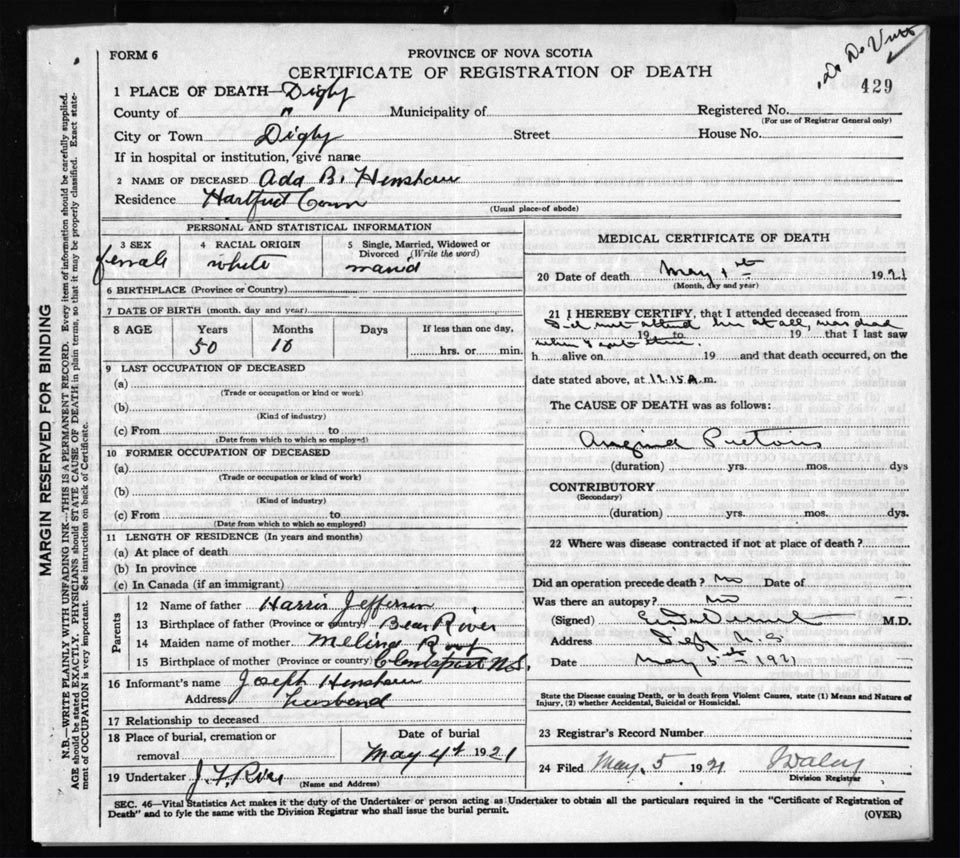 FORM 6
PROVINCE OF NOVA SCOTIA
CERTIFICATE OF REGISTRATION OF DEATH
Dr De Vern
429
1 PLACE OF DEATH—Digby
County of " Municipality of Registered No.
(For use of Registrar General only)
City or Town Digby Street House No.
If in hospital or institution, give name
2 NAME OF DECEASED Ada B. Henshaw
Residence Hartford Conn
(Usual place of abode)
PERSONAL AND STATISTICAL INFORMATION
3 SEX 4 RACIAL ORIGIN 5 Single, Married, Widowed or Divorced (Write the word)
female white
6 BIRTHPLACE (Province or Country)
7 DATE OF BIRTH (month, day and year)
8 AGE Years Months Days If less than one day,
50 10 hrs. or min.
9 LAST OCCUPATION OF DECEASED
(a)
(Trade or occupation or kind or work)
(b)
(Kind of industry)
(c) From to
(Date from which to which so employed)
10 FORMER OCCUPATION OF DECEASED
(a)
(Trade or occupation or kind of work)
(b)
(Kind of industry)
(c) From to
(Date from which to which so employed)
11 LENGTH OF RESIDENCE (In years and months)
(a) At place of death
(b) In province
(c) In Canada (if an immigrant)
Parents
12 Name of father Harris Jefferson
13 Birthplace of father (Province or country) Bear River
14 Maiden name of mother Root
15 Birthplace of mother (Province or country) Clementsport N.S.
16 Informant's name Joseph Henshaw
Address husband
17 Relationship to deceased
18 Place of burial, cremation or removal Date of burial
May 4th 1921
19 Undertaker J. F. Rice
(Name and Address)
MEDICAL CERTIFICATE OF DEATH
20 Date of death May 1st 1921
(Month, day and year)
21 I HEREBY CERTIFY, that I attended deceased from
Did not attend her at all, was dead
19 to 19 that I last saw
when I got there.
h alive on 19 and that death occurred, on the
date stated above, at 11.15 A.m.
The CAUSE OF DEATH was as follows:
Angina Pectoris
(duration) yrs. mos. dys
CONTRIBUTORY
(Secondary)
(duration) yrs. mos. dys.
22 Where was disease contracted if not at place of death?
Did an operation precede death? no Date of
Was there an autopsy? no
(Signed) M.D.
Address Digby N.S
Date May 5th 1921
State the Disease causing Death, or in death from Violent Causes, state (1) Means and Nature of
Injury, (2) whether Accidental, Suicidal or Homicidal.
23 Registrar's Record Number
24 Filed May 5 1921
Division Registrar
SEC. 46—Vital Statistics Act makes it the duty of the Undertaker or person acting as Undertaker to obtain all the particulars required in the "Certificate of Registration of
Death" and to fyle the same with the Division Registrar who shall issue the burial permit.
(OVER)
MARGIN RESERVED FOR BINDING
N.B.—WRITE PLAINLY WITH UNFADING INK—THIS IS A PERMANENT RECORD. Every item of information should be carefully supplied.
AGE should be stated EXACTLY. PHYSICIANS should STATE CAUSE OF DEATH in plain terms, so that it may be properly classified. Exact state-
ment of OCCUPATION is very important. See instructions on back of Certificate.